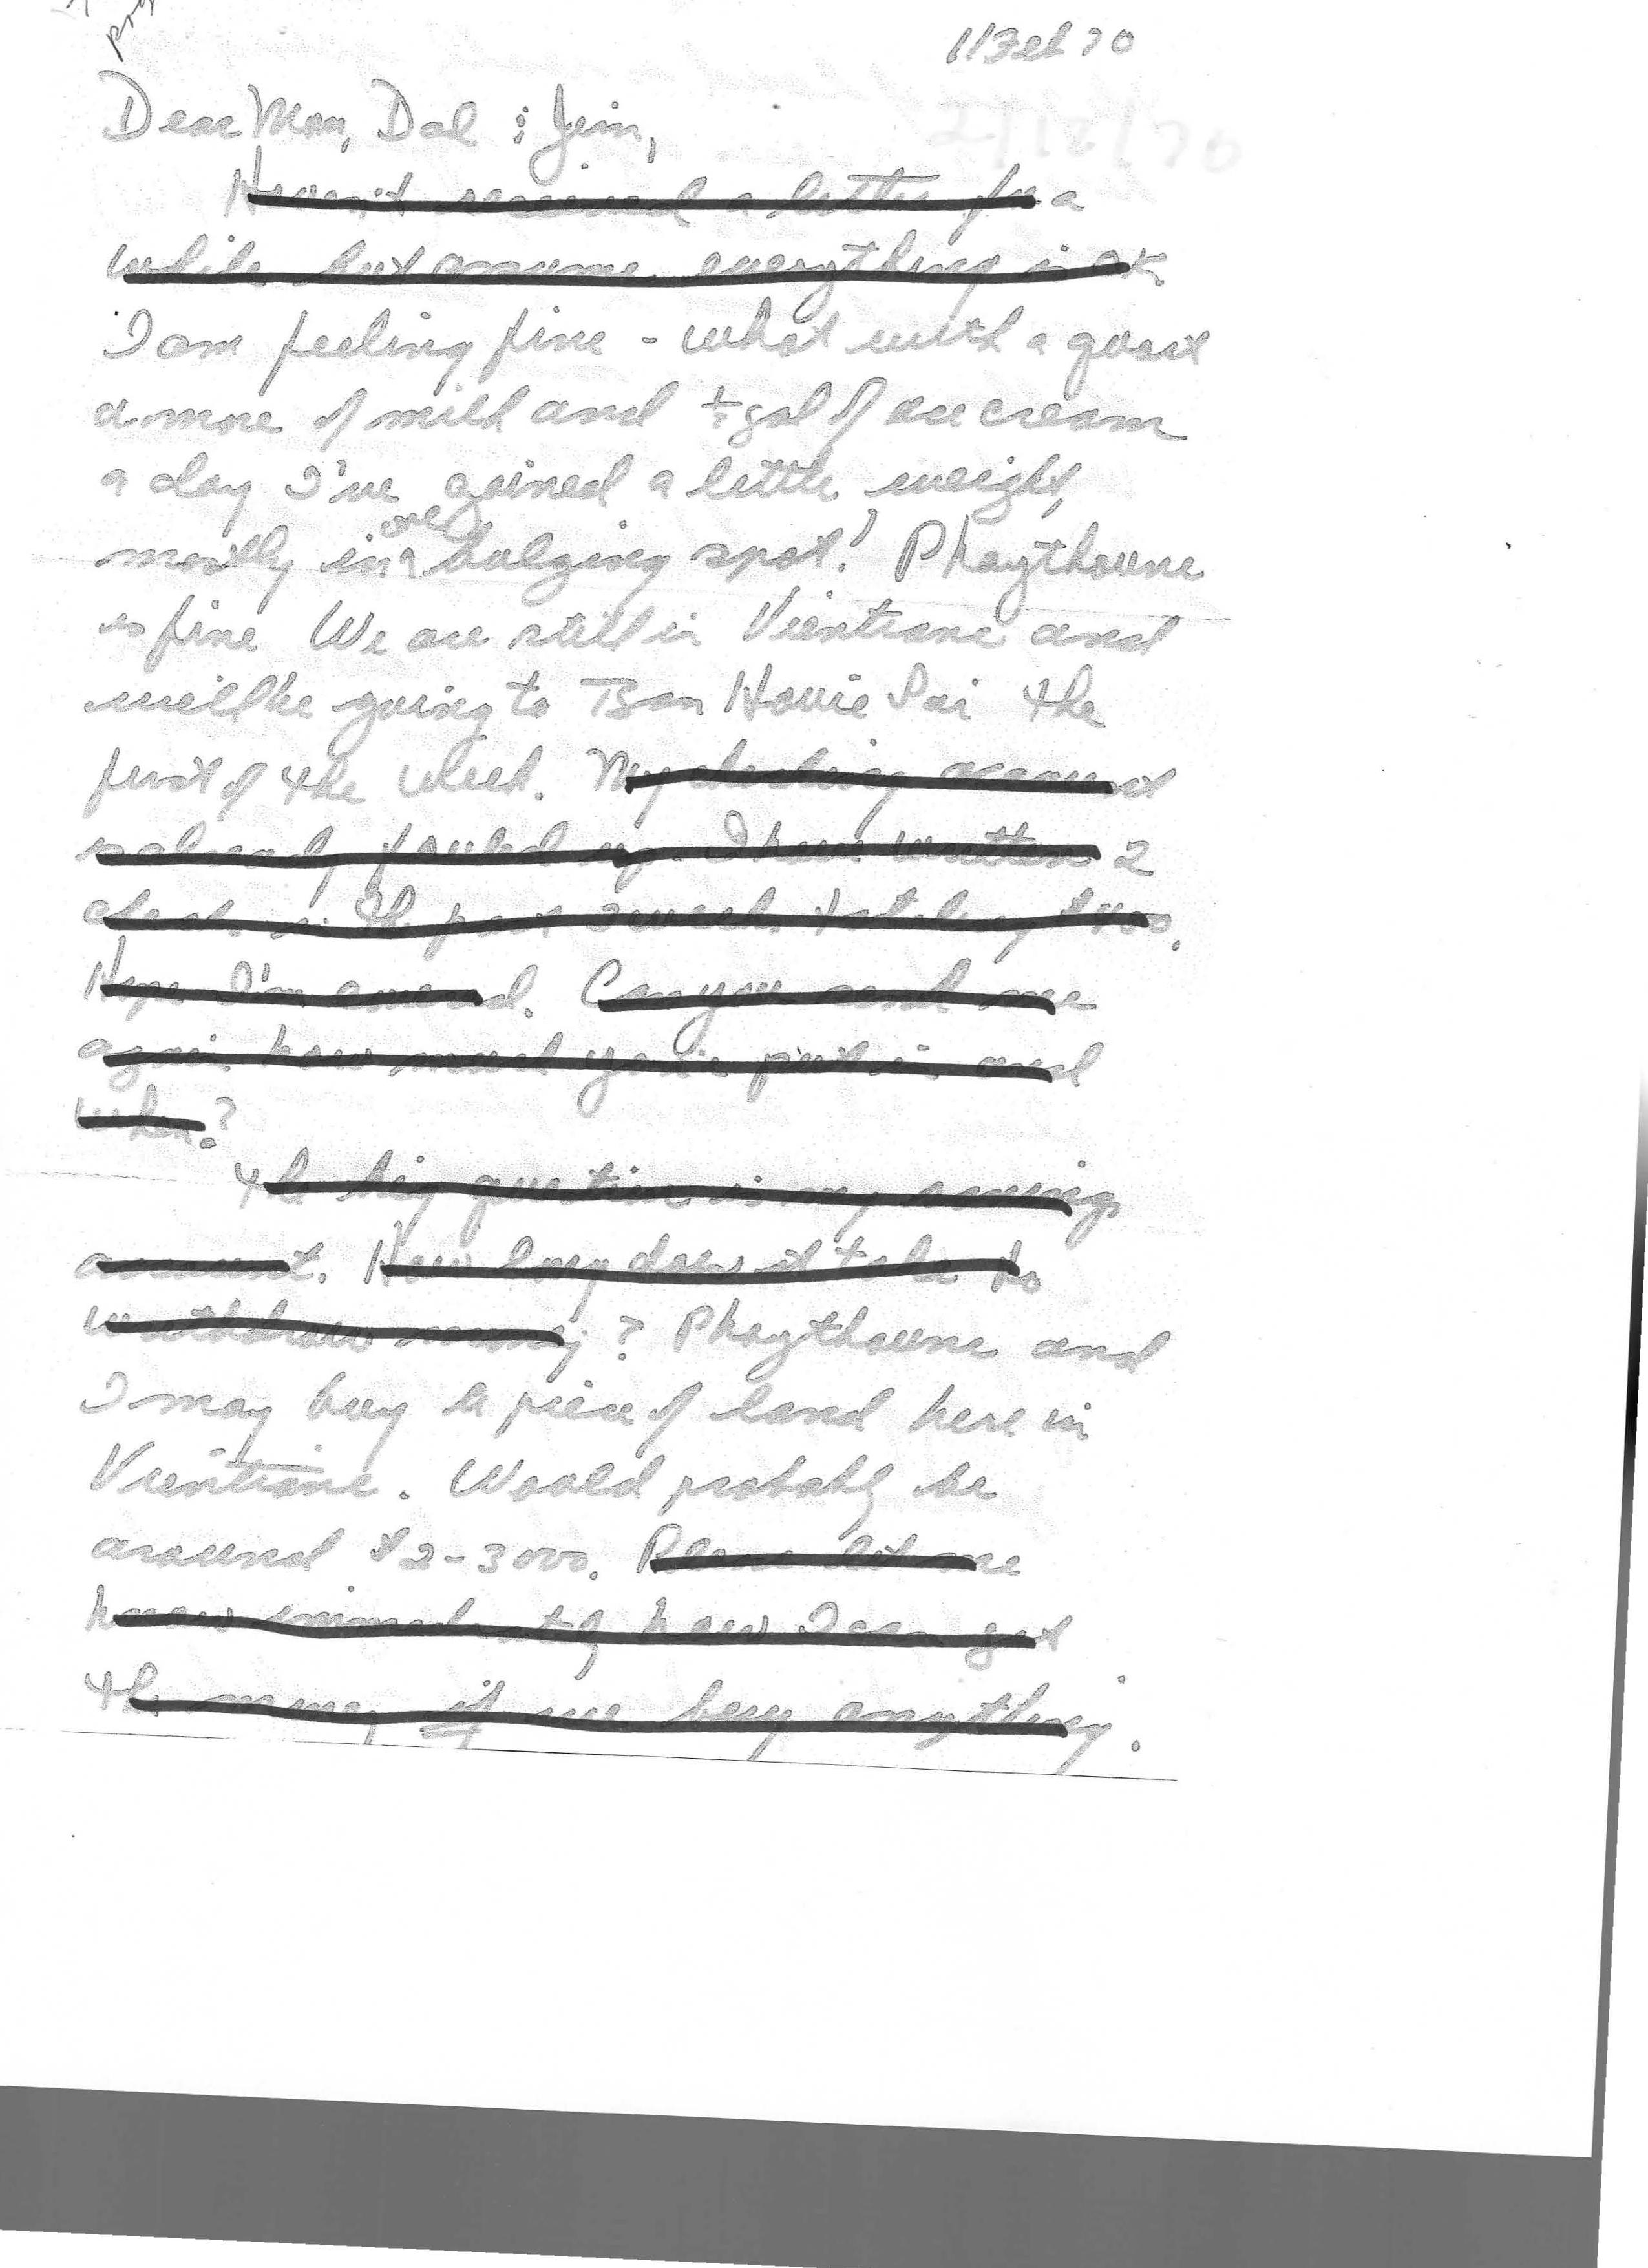 11 Feb 70
2/12/70
Dear Mom, Dad & Jim,
Haven't received a letter for a
while but assume everything is ok.
I am feeling fine - what with a quart
a more of milk and ½ gal of ice cream
a day I've gained a little weight,
mostly in one bulging spot! Phaythoune
is fine We are still in Vientiane and
will be going to Ban Houie Sai the
first of the week. My checking account
is already fouled up. I have written 2
checks in the past 2 weeks totaling $400.
Hope I'm covered. Can you send me
again how much you've put in and
when?
The big question is my savings
account. How long does it take to
withdraw money? Phaythoune and
I may buy a piece of land here in
Vientiane. Would probably be
around $2-3000. Please let me
know immediately how I can get
the money if we buy anything.